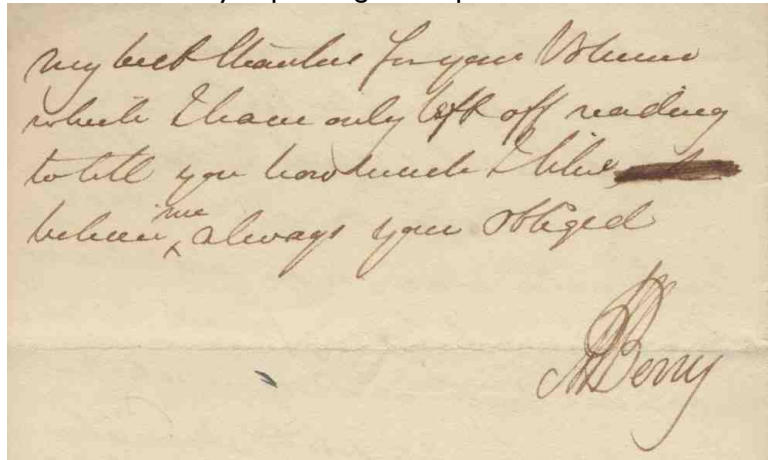 my best thanks for your Volume
which I have only left off reading
to tell you how much I like
believe me always your obliged
MBerry